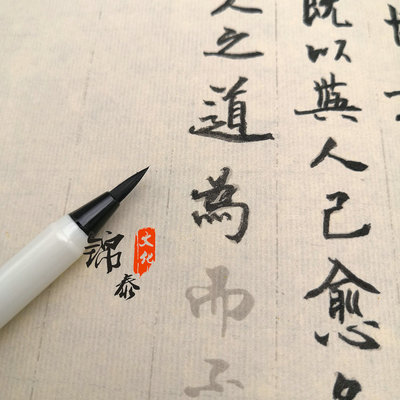 既以與人己愈
人之道為而不
锦泰
文化